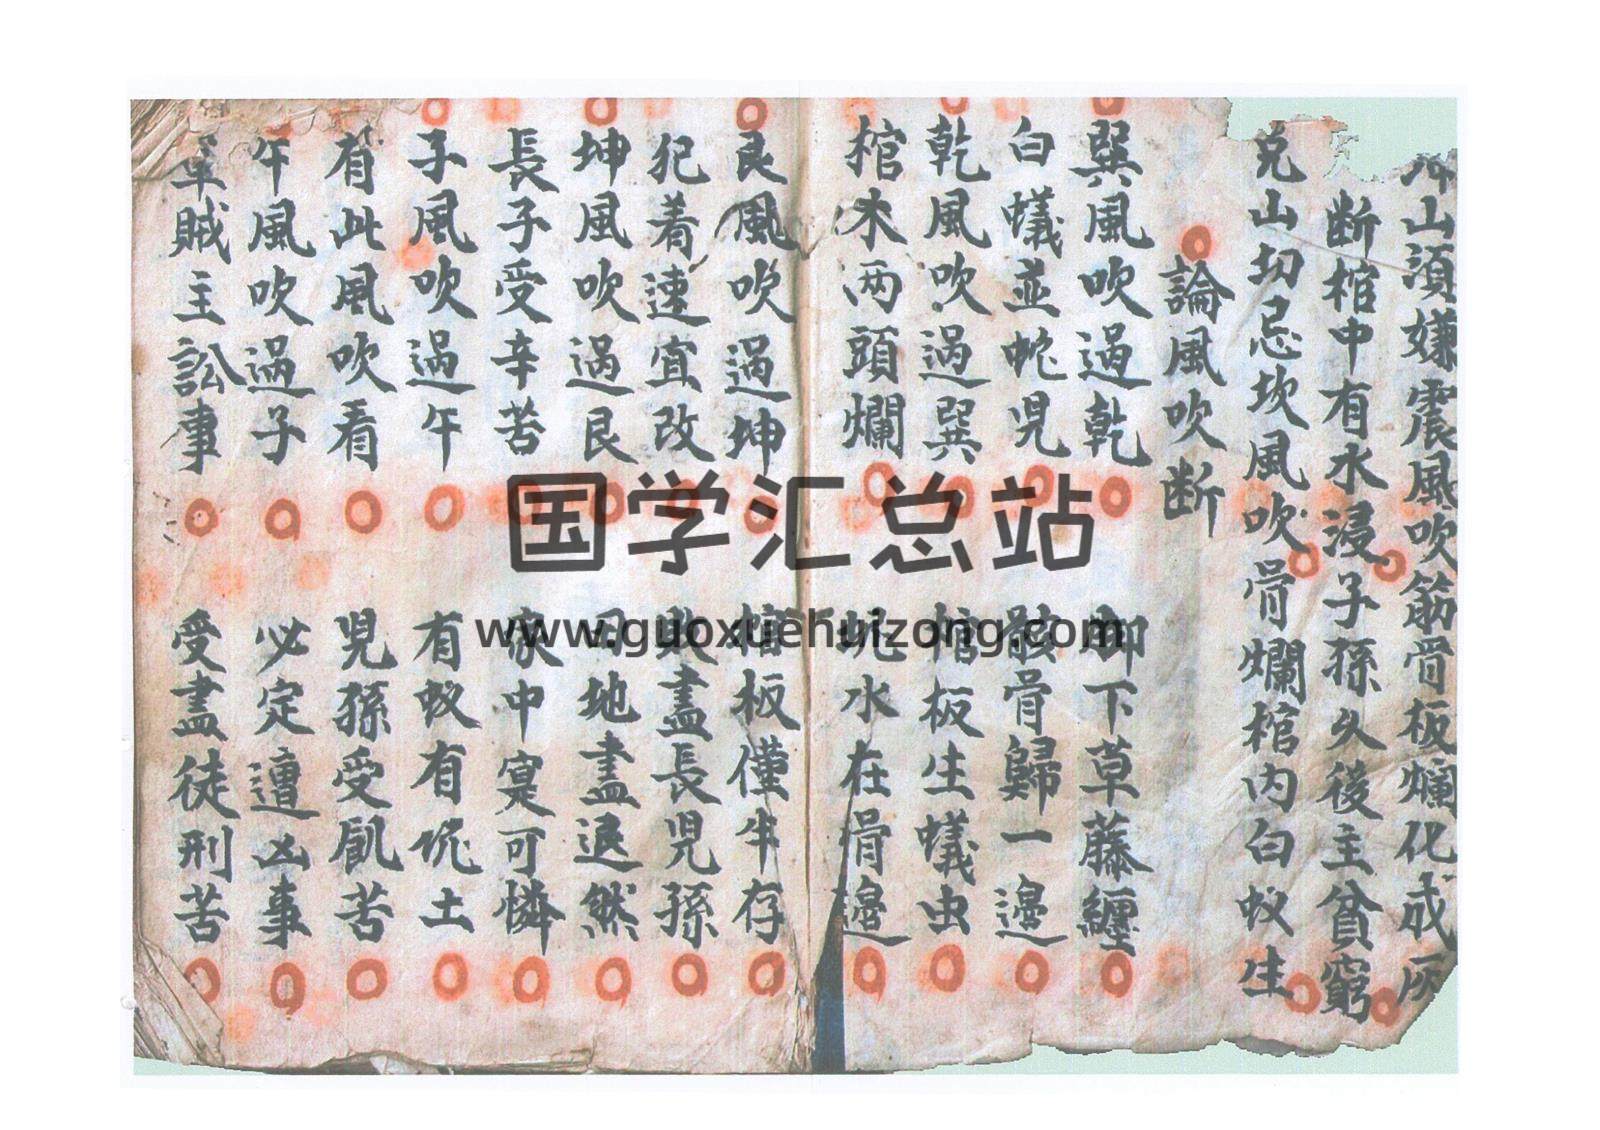 山須嫌震風吹筋骨板爛化成灰
断棺中有水浸子孫久後主貧窮
兌山切忌坎風吹骨爛棺内白蚁生
論風吹断
巽風吹過乾 下草藤纏
白蟻並蛇児 骸骨歸一邊
乾風吹過巽 棺板生蟻虫
棺木两頭爛 坑水在骨邊
艮風吹過坤 棺板僅半存
犯着速宜改 盡長児孫
坤風吹過艮 田地盡退然
長子受辛苦 家中寞可憐
子風吹過午 有蚁有坭土
有此風吹看 児孫受飢苦
午風吹過子 必定遭凶事
軍賊主訟事 受盡徒刑苦
国学汇总站
www.guoxuehuizong.com